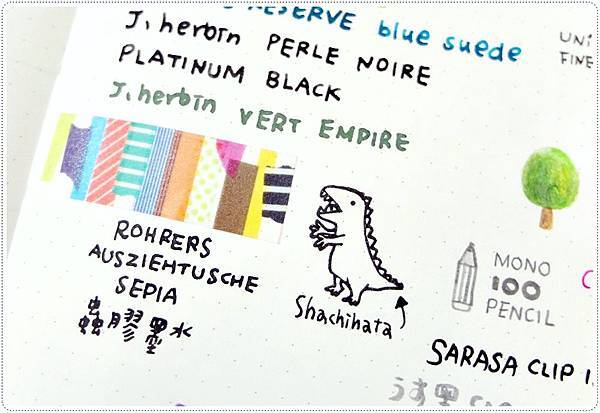 RESERVE blue suede
J. herbin PERLE NOIRE
PLATINUM BLACK
J. herbin VERT EMPIRE
UNI
FINE
ROHRERS
AUSZIEHTUSCHE
SEPIA
蟲膠墨水
Shachihata
MONO
100
PENCIL
SARASA CLIP
うす墨